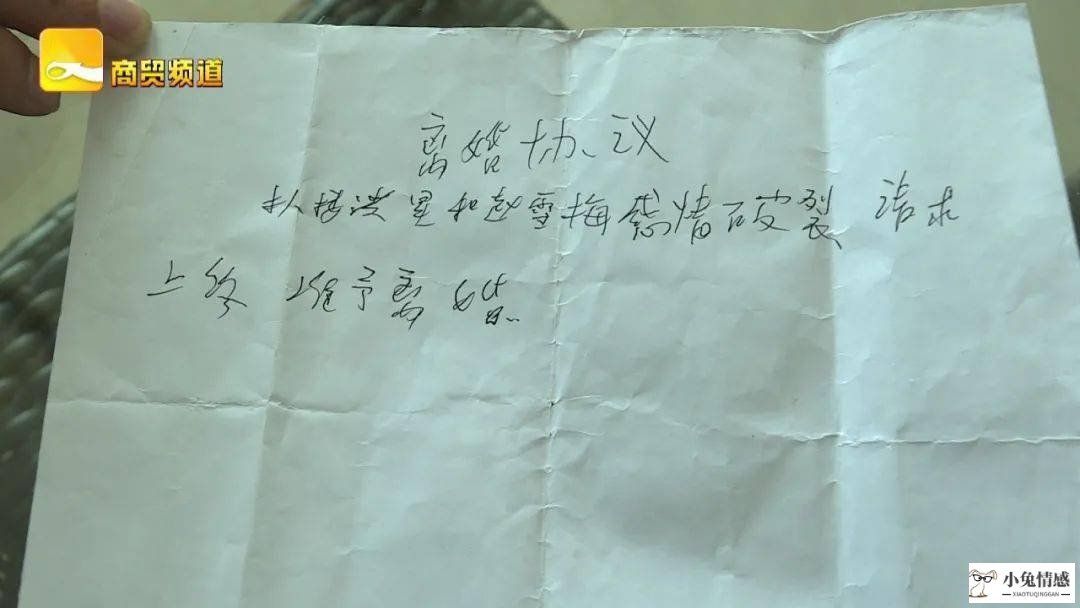 商贸频道
离婚协议
和赵雪梅感情破裂 请求
上 准予离婚
小兔情感
XIAOTUQINGGAN